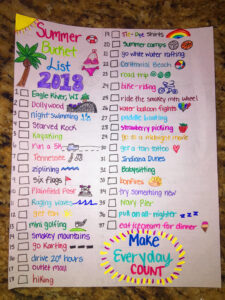 Summer
Bucket
List
2018
1 Eagle River, WI
2 Dollywood
3 night swimming
4 Starved Rock
5 Kayaking
6 run a 5k
7 Tennessee
8 ziplining
9 six flags
10 Plainfield Pool
11 Raging waves
12 get tan
13 mini golfing
14 smokey mountains
15 go karting
16 drive 20+ hours
17 outlet mall
18 hiking
19 tie-dye shirts
20 Summer camps
21 go white water rafting
22 Centennial Beach
23 road trip
24 bike-riding
25 ride the smokey mtn wheel
26 water balloon fights
27 paddle boating
28 strawberry picking
29 go to a midnight movie
30 get a fan tattoo
31 Indiana Dunes
32 Babysitting
33 Bonfires
34 try something new
35 Navy Pier
36 pull an all-nighter zzz
37 eat icecream for dinner
Make
Everyday
COUNT